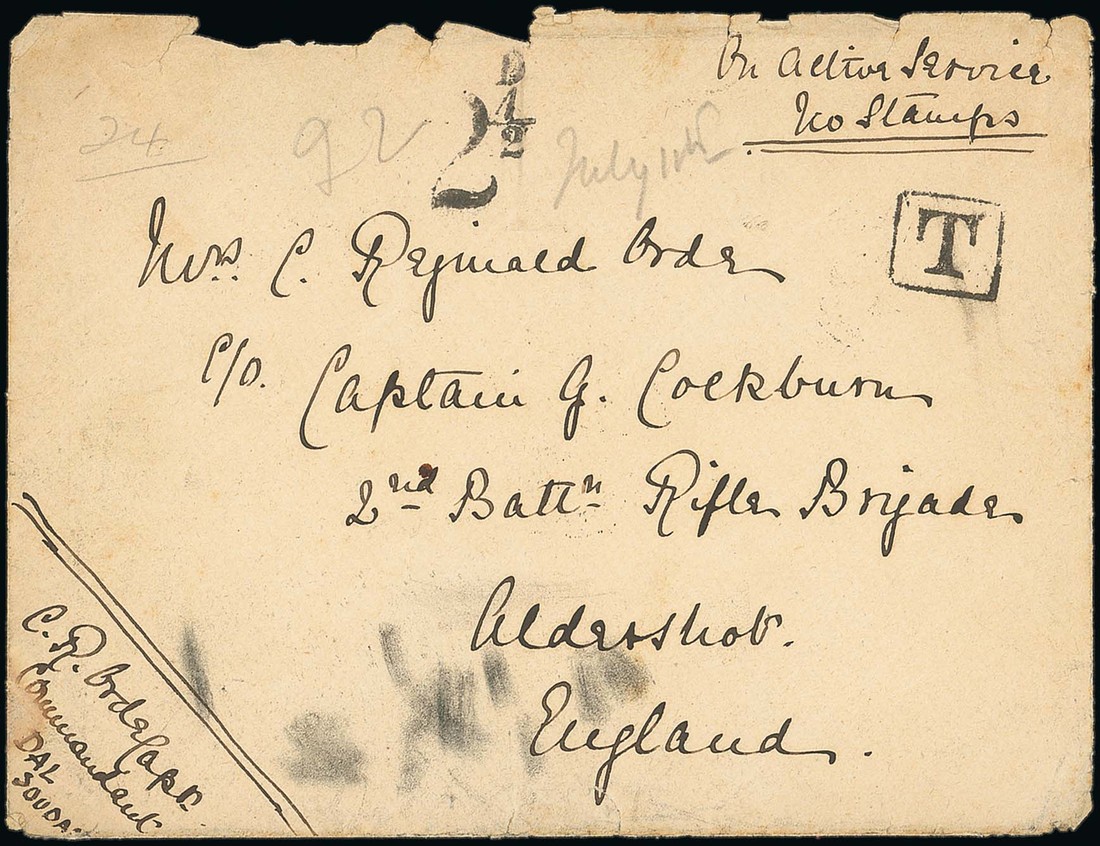 On Active Service
No Stamps
24
92
2 1/2 D
July 10th
T
Mrs. C. Reginald Orde
c/o. Captain G. Cockburn
2nd Battn Rifle Brigade
Aldershot.
England.
C. R. Orde Capt.
Commandant
DAL
SOUDA